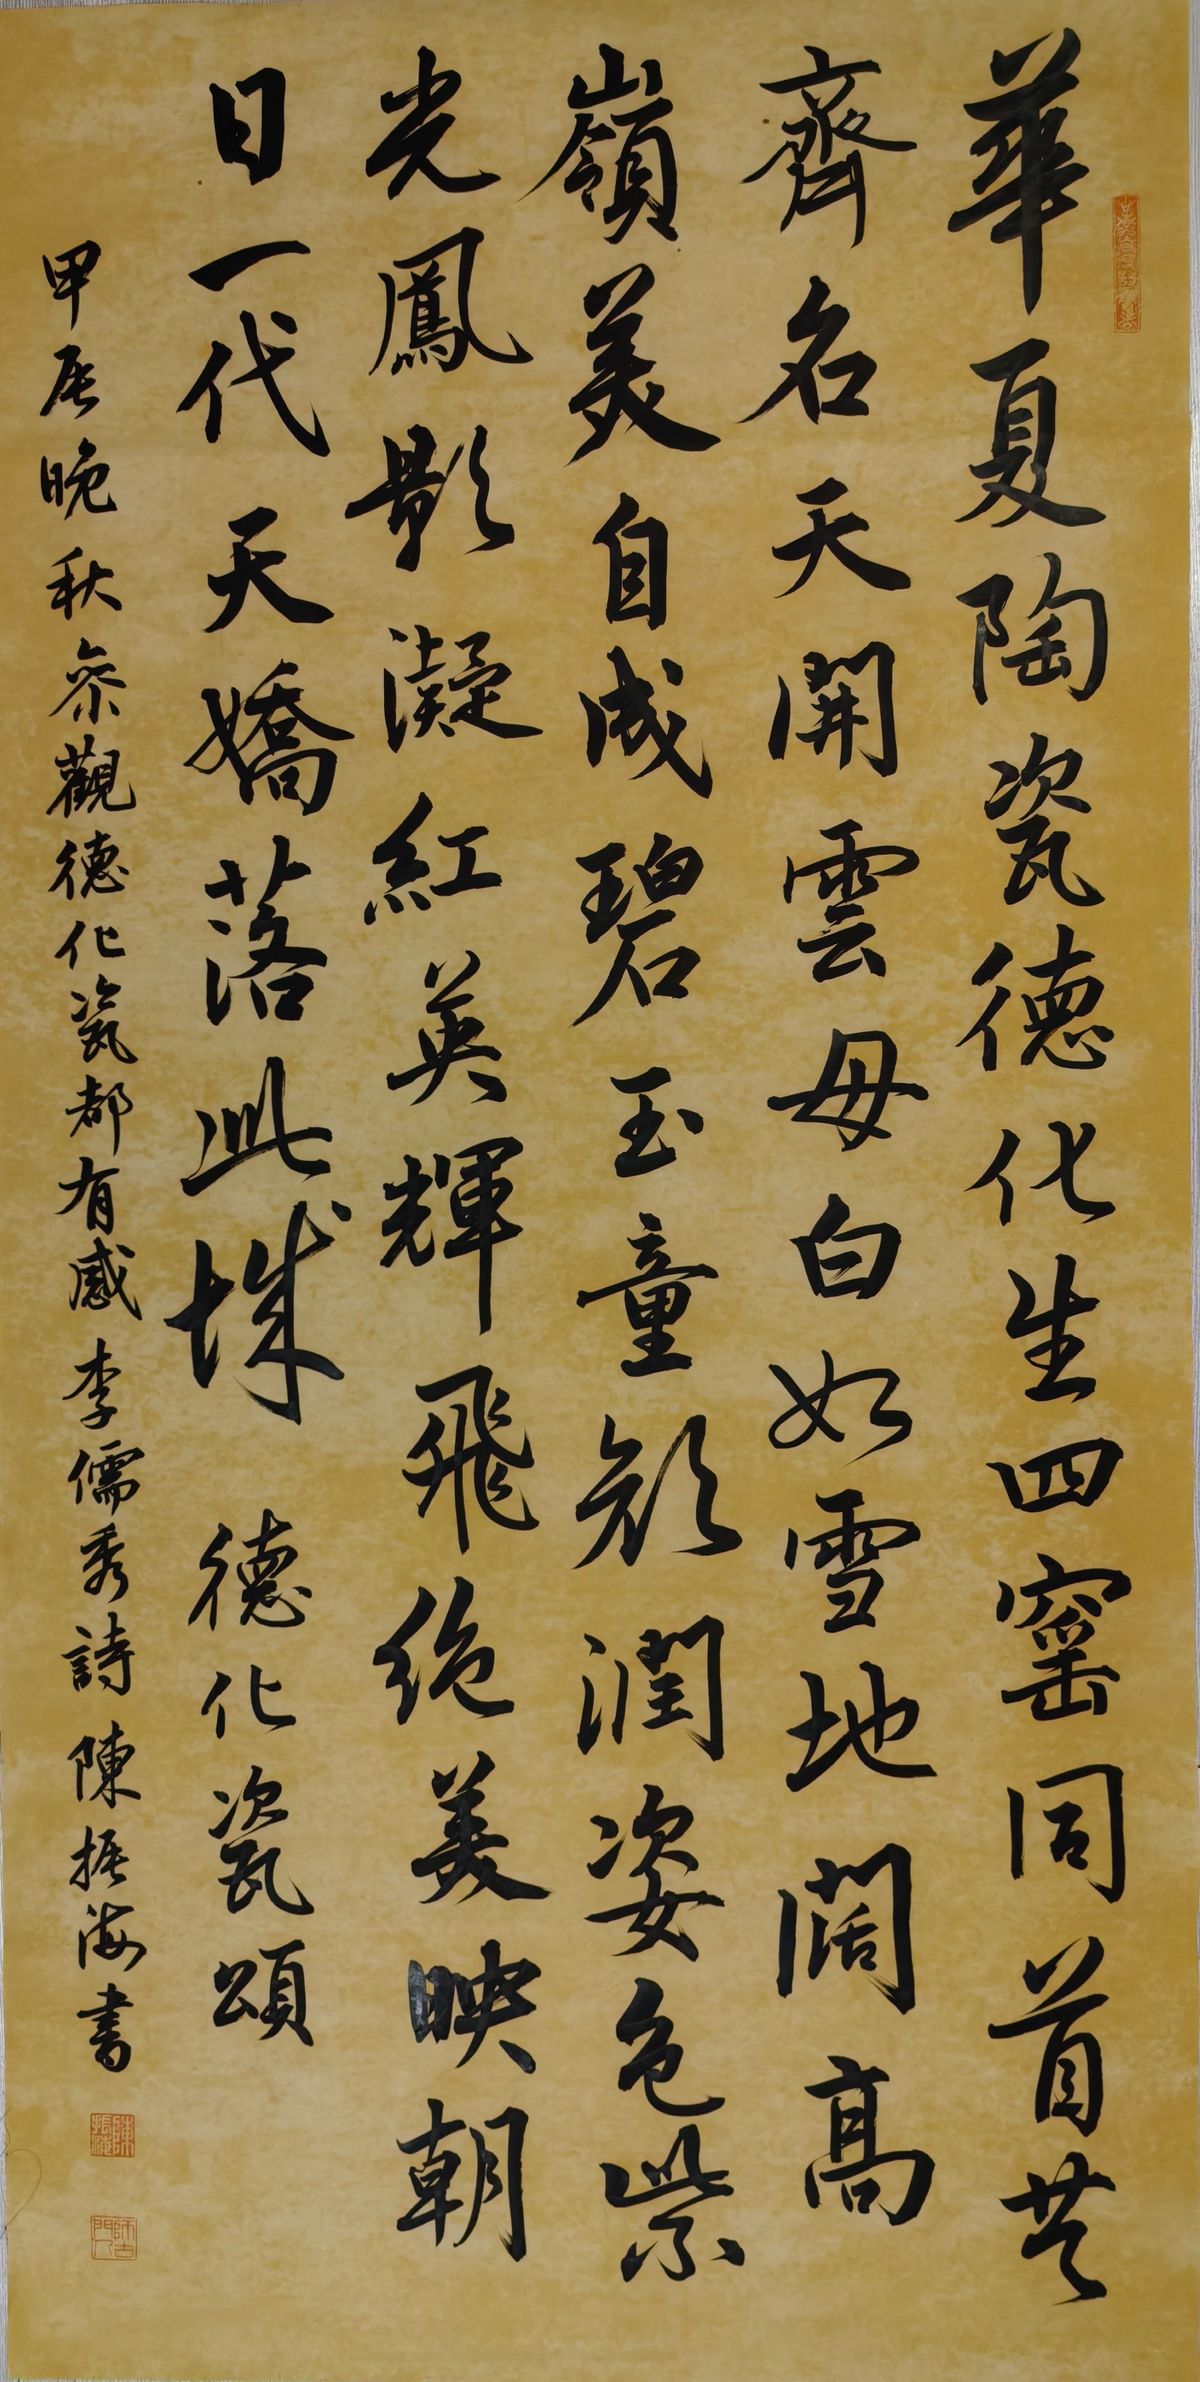 華夏陶瓷德化生四窰同首共
齊名天開雲母白如雪地闊高
嶺美自成碧玉童顏潤姿色紫
光鳳影凝紅英輝飛絶美映朝
日一代天嬌落此城 德化瓷頌
甲辰晚秋參觀德化瓷都有感李儒秀詩陳振海書
陳振海
師古門人